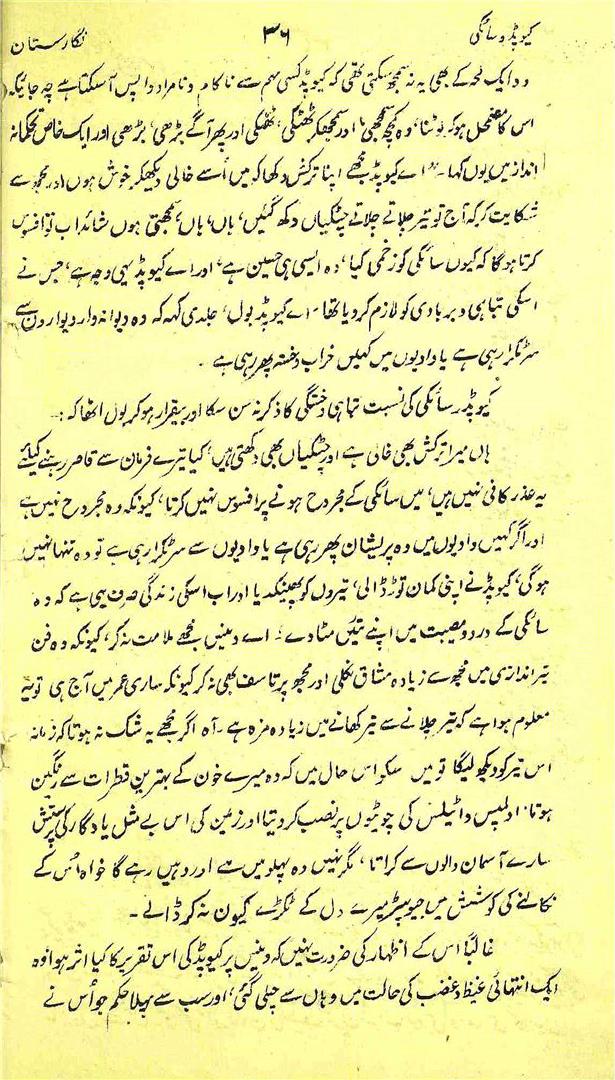 کیوپڈ و سائکی ۳۶ نگارستان
وہ ایک لمحہ کے لئے بھی یہ نہ سمجھ سکتی تھی کہ کیوپڈ کسی مہم سے ناکام و نامراد واپس آسکتا ہے چہ جائیکہ
اس کا مضمحل ہوکر لوٹنا، وہ کچھ سمجھی، اور سمجھکر ٹھٹکی، ٹھٹکی اور پھر آگے بڑھی، بڑھی اور ایک خاص تحکمانہ
انداز میں یوں کہا۔ "اے کیوپڈ مجھے اپنا ترکش دکھا کہ میں اُسے خالی دیکھکر خوش ہوں اور مجھ سے
شکایت کر کہ آج تو تیر چلاتے چلاتے چٹکیاں دکھ گئیں، ہاں، ہاں، سمجھتی ہوں شائد اب تو افسوس
کرتا ہوگا کہ کیوں سائکی کو زخمی کیا، وہ ایسی ہی حسین ہے، اور اے کیوپڈ یہی وجہ ہے، جس نے
اسکی تباہی و بربادی کو لازم کردیا تھا۔ اے کیوپڈ بول، جلدی کہہ کہ وہ دیوانہ وار دیواروں سے
سر ٹکرا رہی ہے یا وادیوں میں کہیں خراب و خستہ پھر رہی ہے۔
کیوپڈ، سائکی کی نسبت تباہی و خستگی کا ذکر نہ سن سکا اور بیقرار ہوکر بول اٹھا کہ:۔
ہاں میرا ترکش بھی خالی ہے اور چٹکیاں بھی دکھتی ہیں، کیا تیرے فرمان سے قاصر رہنے کیلئے
یہ عذر کافی نہیں ہیں، میں سائکی کے مجروح ہونے پر افسوس نہیں کرتا، کیونکہ وہ مجروح نہیں ہے
اور اگر کہیں وادیوں میں وہ پریشان پھر رہی ہے یا وادیوں سے سر ٹکرا رہی ہے تو وہ تنہا نہیں
ہوگی، کیوپڈ نے اپنی کمان توڑ ڈالی، تیروں کو پھینکدیا اور اب اسکی زندگی صرف یہی ہے کہ وہ
سائکی کے درد و مصیبت میں اپنے تئیں مٹا دے۔ اے وینس مجھے ملامت نہ کر، کیونکہ وہ فن
تیر اندازی میں مجھ سے زیادہ مشاق نکلی اور مجھ پر تاسف بھی نہ کر کیونکہ ساری عمر میں آج ہی تو یہ
معلوم ہوا ہے کہ تیر چلانے سے تیر کھانے میں زیادہ مزہ ہے۔ آہ اگر مجھے یہ شک نہ ہوتا کہ زمانہ
اس تیر کو دیکھ لیگا تو میں اس حال میں کہ وہ میرے خون کے بہترین قطرات سے رنگین
ہوتا، اولمپس و اٹیلس کی چوٹیوں پر نصب کردیتا اور زمین کی اس بے مثل یادگار کی پرستش
سارے آسمان والوں سے کراتا، مگر نہیں وہ پہلو میں ہے اور وہیں رہے گا خواہ اُس کے
نکالنے کی کوشش میں جیوپیٹر میرے دل کے ٹکڑے کیوں نہ کر ڈالے۔
غالباً اس کے اظہار کی ضرورت نہیں کہ وینس پر کیوپڈ کی اس تقریر کا کیا اثر ہوا، وہ
ایک انتہائی غیظ و غضب کی حالت میں وہاں سے چلی گئی، اور سب سے پہلا حکم جو اُس نے